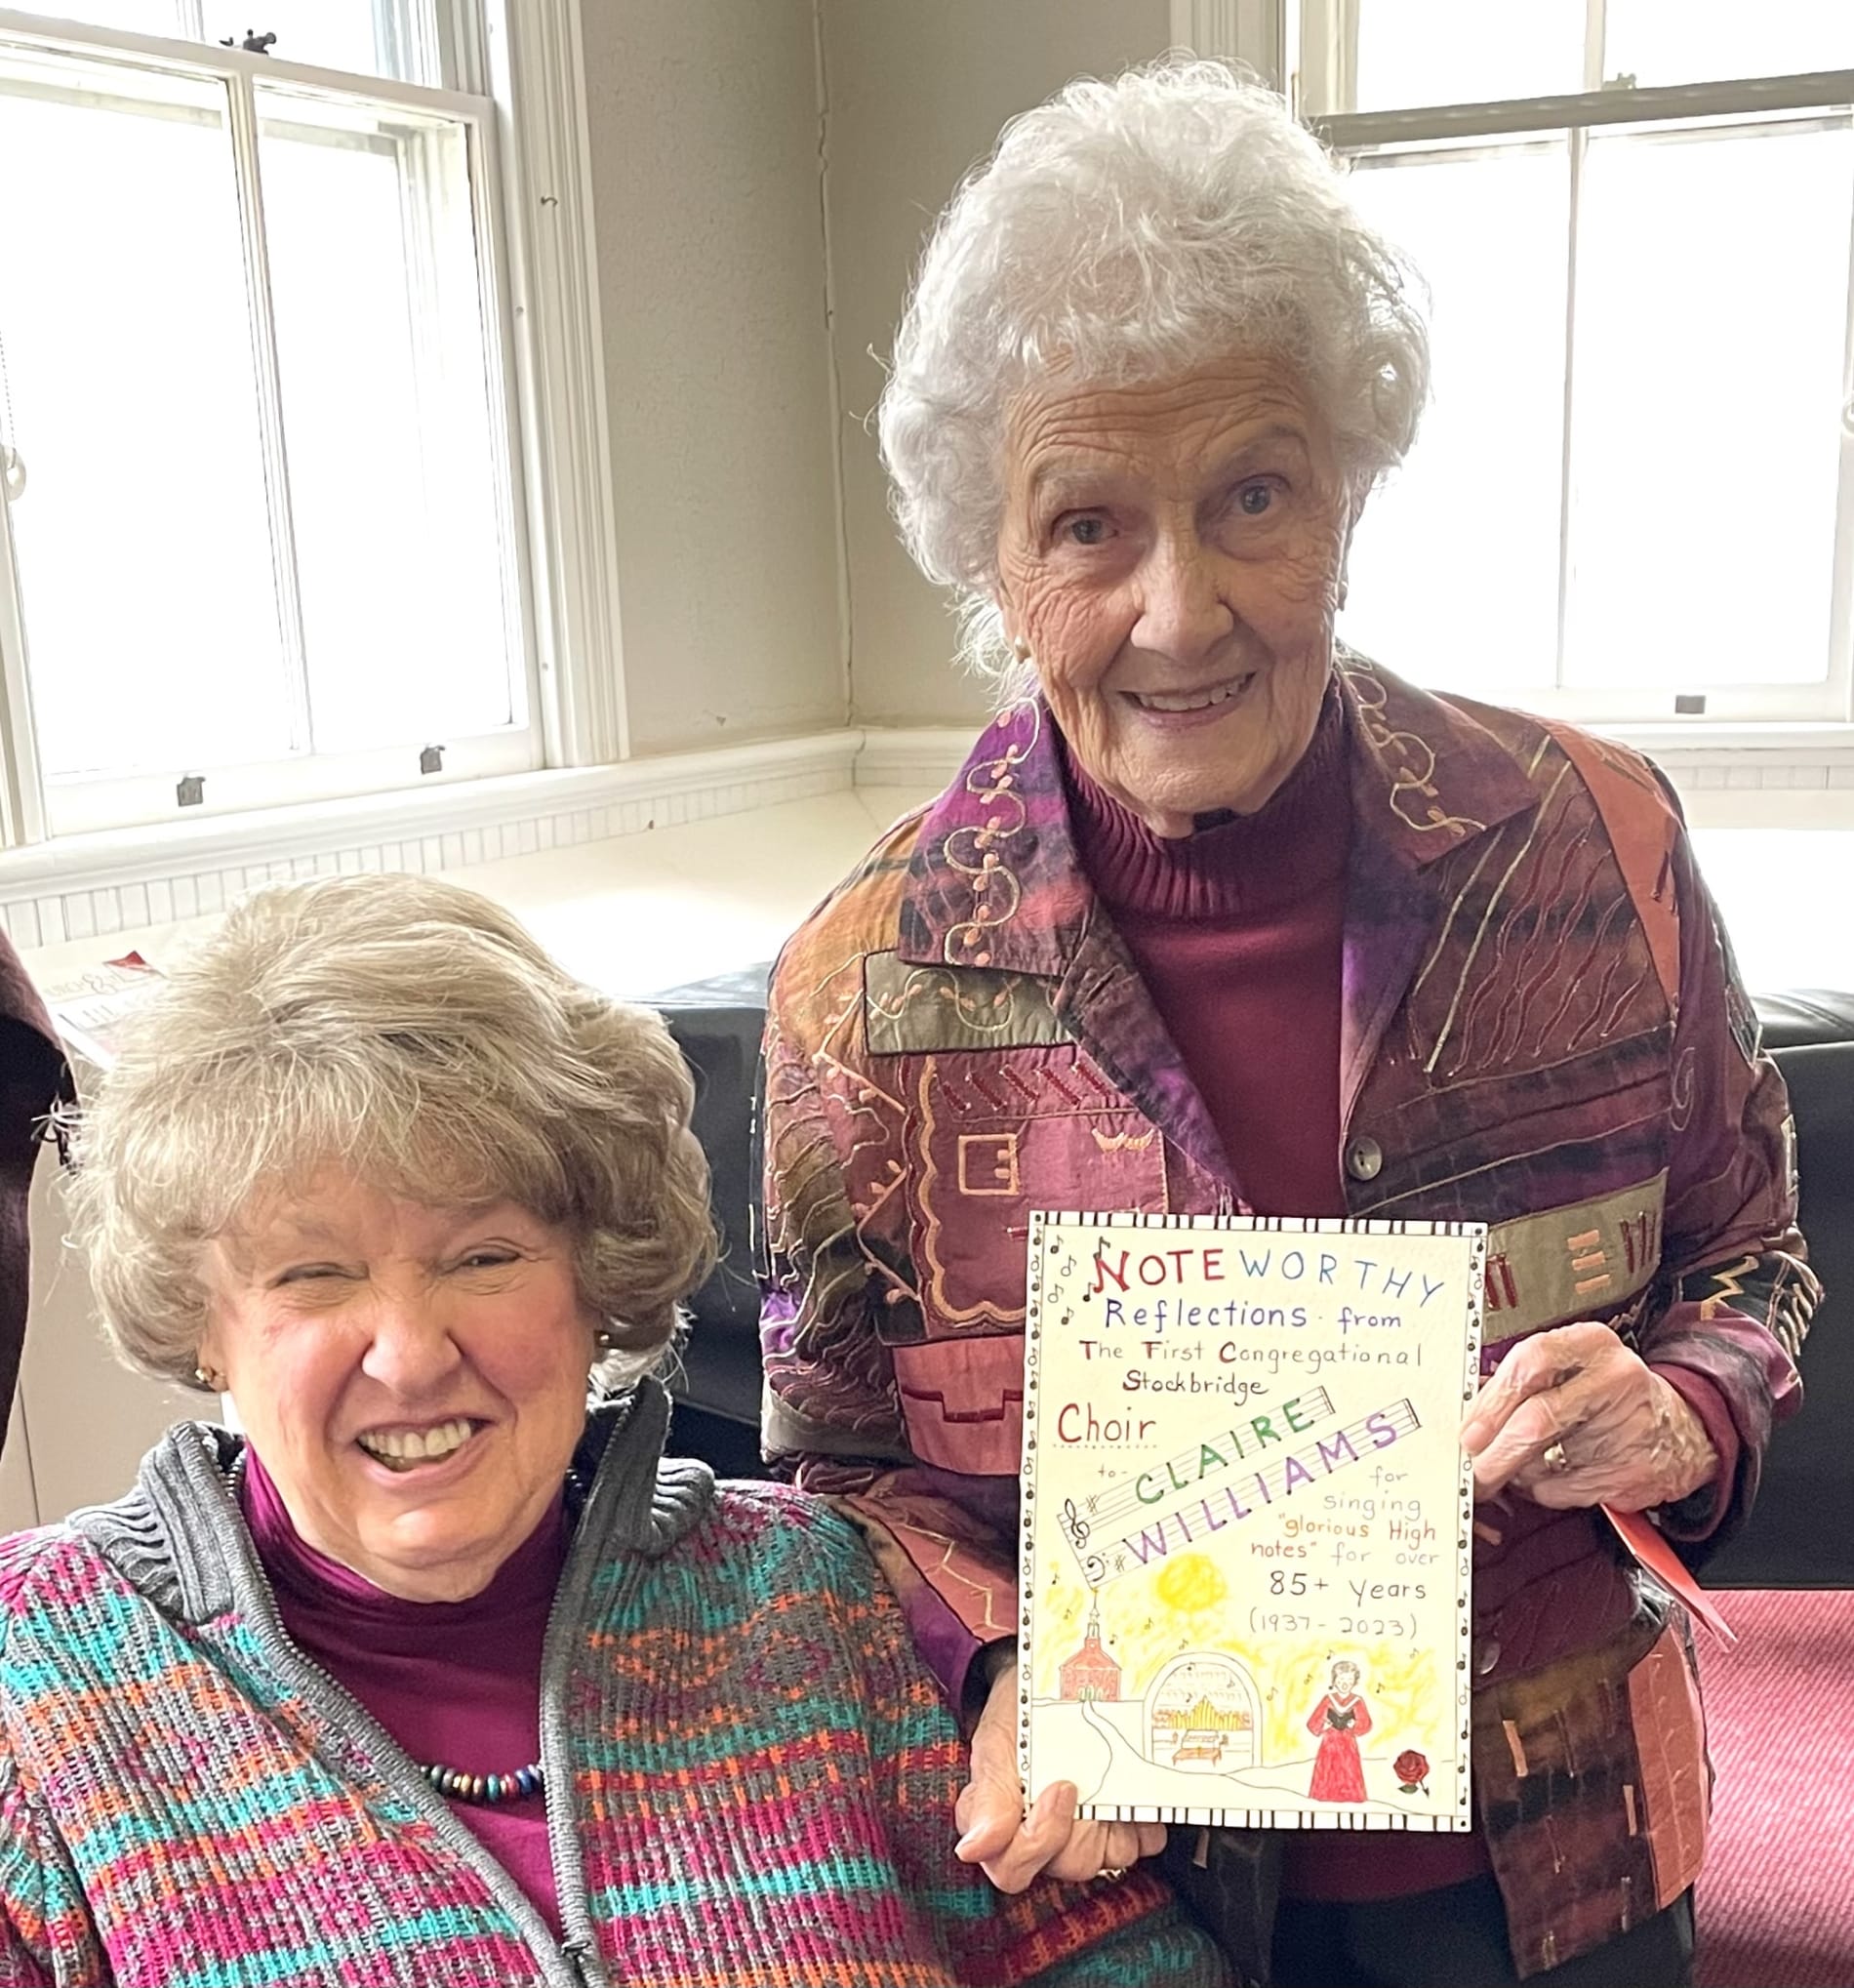 NOTEWORTHY
Reflections from
The First Congregational
Stockbridge
Choir
to-
CLAIRE
WILLIAMS
for
singing
"glorious High
notes" for over
85+ years
(1937-2023)